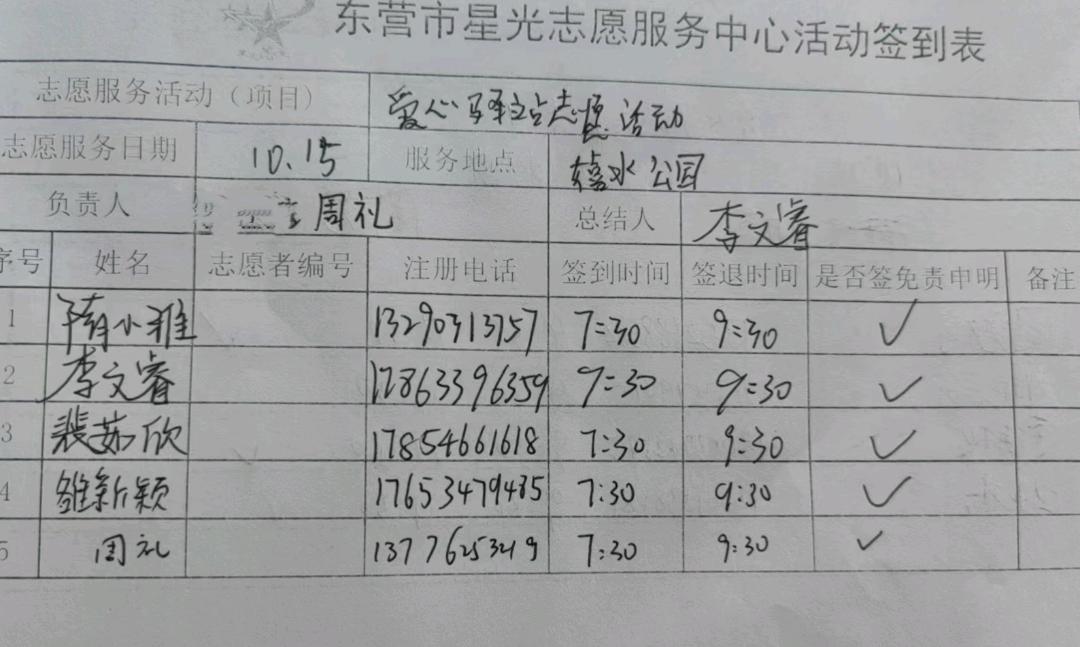 东营市星光志愿服务中心活动签到表
志愿服务活动（项目） 爱心驿站志愿活动
志愿服务日期 10.15 服务地点 水公园
负责人 周礼 总结人 李文睿
序号 姓名 志愿者编号 注册电话 签到时间 签退时间 是否签免责申明 备注
1 隋小雅 13290313757 7:30 9:30 ✓
2 李文睿 17863396359 9:30 9:30 ✓
3 裴茹欣 17854661618 7:30 9:30 ✓
4 新颖 17653479485 7:30 9:30 ✓
5 周礼 13776253219 7:30 9:30 ✓